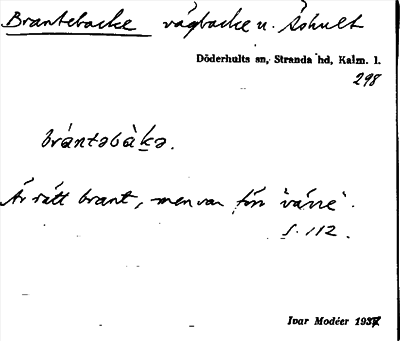 Brantebacke vägbacke u. Åshult
Döderhults sn, Stranda hd, Kalm. l.
298
brántəbàkə.
Är rätt brant, men var förr "värre".
s. 112.
Ivar Modéer 1937